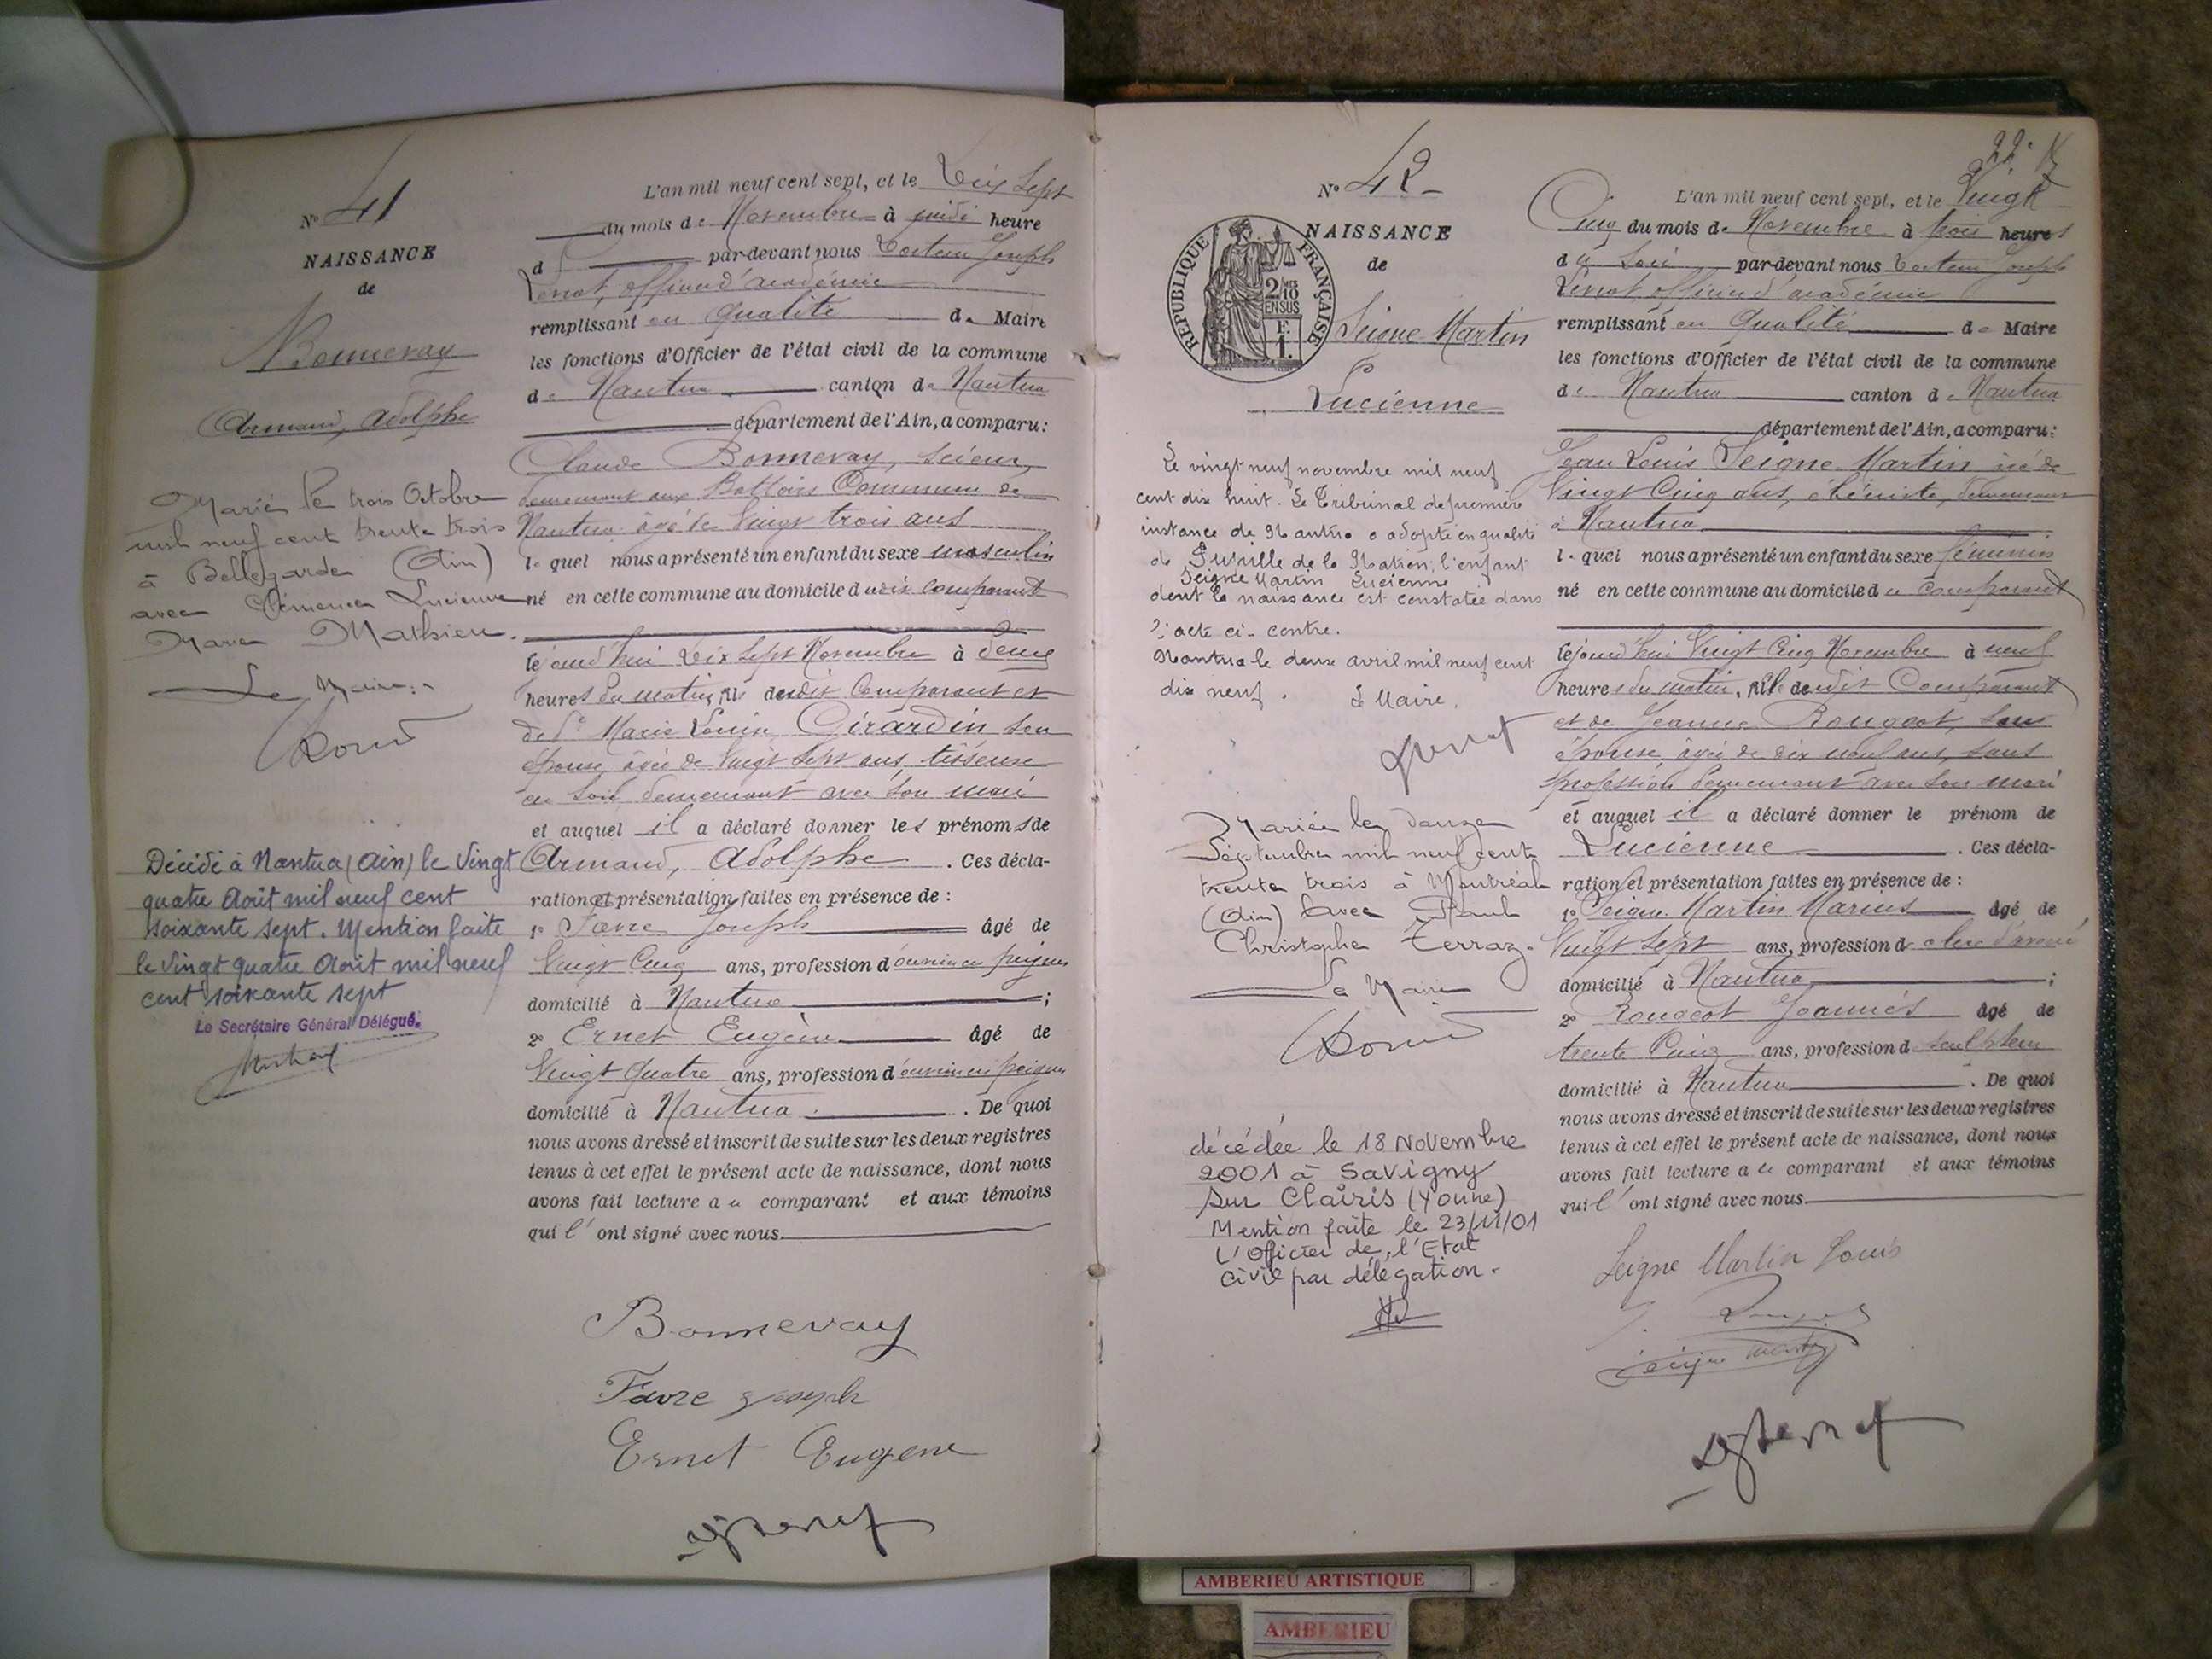 N° 41
NAISSANCE
de
Bonnevay
Armand, Adolphe
Marié le trois Octobre
mil neuf cent trente trois
à Bellegarde (Ain)
avec Clémence Lucienne
Marie Mathieu.
Le Maire
Décédé à Nantua (Ain) le Vingt
quatre Août mil neuf cent
soixante sept. Mention faite
le Vingt quatre Août mil neuf
cent soixante sept
Le Secrétaire Général Délégué.
L'an mil neuf cent sept, et le Dix Sept
du mois de Novembre à midi heure
d par-devant nous Docteur Joseph
officier d'académie
remplissant en qualité de Maire
les fonctions d'Officier de l'état civil de la commune
de Nantua canton de Nantua
département de l'Ain, a comparu:
Claude Bonnevay, scieur,
demeurant aux Battoirs Commune de
Nantua âgé de Vingt trois ans
lequel nous a présenté un enfant du sexe masculin
né en cette commune au domicile dudit comparant
cejourd'hui Dix Sept Novembre à deux
heures du matin, fils dudit Comparant et
de De Marie Louise Girardin son
épouse, âgée de Vingt Sept ans, tisseuse
en soie demeurant avec son mari
et auquel il a déclaré donner les prénoms de
Armand, Adolphe. Ces décla-
ration et présentation faites en présence de:
1° Favre Joseph âgé de
Vingt Cinq ans, profession d'ouvrier en peignes
domicilié à Nantua;
2° Ernet Eugène âgé de
Vingt Quatre ans, profession d'ouvrier en peignes
domicilié à Nantua. De quoi
nous avons dressé et inscrit de suite sur les deux registres
tenus à cet effet le présent acte de naissance, dont nous
avons fait lecture au comparant et aux témoins
qui l'ont signé avec nous.
Bonnevay
Favre Joseph
Ernet Eugene
22.
N° 42
NAISSANCE
de
RÉPUBLIQUE FRANÇAISE
2/10 EN SUS
Seigne Martin
Lucienne
Le vingt neuf novembre mil neuf
cent dix huit. Le Tribunal de première
instance de Nantua a adopté en qualité
de Pupille de la Nation, l'enfant
Seigne Martin Lucienne
dont la naissance est constatée dans
l'acte ci-contre.
Nantua le deux avril mil neuf cent
dix neuf.
Le Maire,
Mariée le douze
Septembre mil neuf cent
trente trois à Montréal
(Ain) avec Paul
Christophe Terraz.
Le Maire
décédée le 18 Novembre
2001 à Savigny
sur Clairis (Yonne)
Mention faite le 23/11/01
L'Officier de l'Etat
civil par délégation.
L'an mil neuf cent sept, et le Vingt
Cinq du mois de Novembre à trois heures
du soir par-devant nous Docteur Joseph
officier d'académie
remplissant en qualité de Maire
les fonctions d'Officier de l'état civil de la commune
de Nantua canton de Nantua
département de l'Ain, a comparu:
Jean Louis Seigne Martin âgé de
Vingt Cinq ans, ébéniste, demeurant
à Nantua
lequel nous a présenté un enfant du sexe féminin
né en cette commune au domicile du comparant
cejourd'hui Vingt Cinq Novembre à neuf
heures du matin, fille dudit Comparant
et de Jeanne Rougeot, son
épouse, âgée de dix neuf ans, sans
profession demeurant avec son mari
et auquel il a déclaré donner le prénom de
Lucienne. Ces décla-
ration et présentation faites en présence de:
1° Seigne Martin Marius âgé de
Vingt Sept ans, profession de clerc d'avoué
domicilié à Nantua;
2° Rougeot Joannès âgé de
trente Cinq ans, profession de sculpteur
domicilié à Nantua. De quoi
nous avons dressé et inscrit de suite sur les deux registres
tenus à cet effet le présent acte de naissance, dont nous
avons fait lecture au comparant et aux témoins
qui l'ont signé avec nous.
Seigne Martin Louis
Seigne Martin
AMBERIEU ARTISTIQUE
AMBERIEU